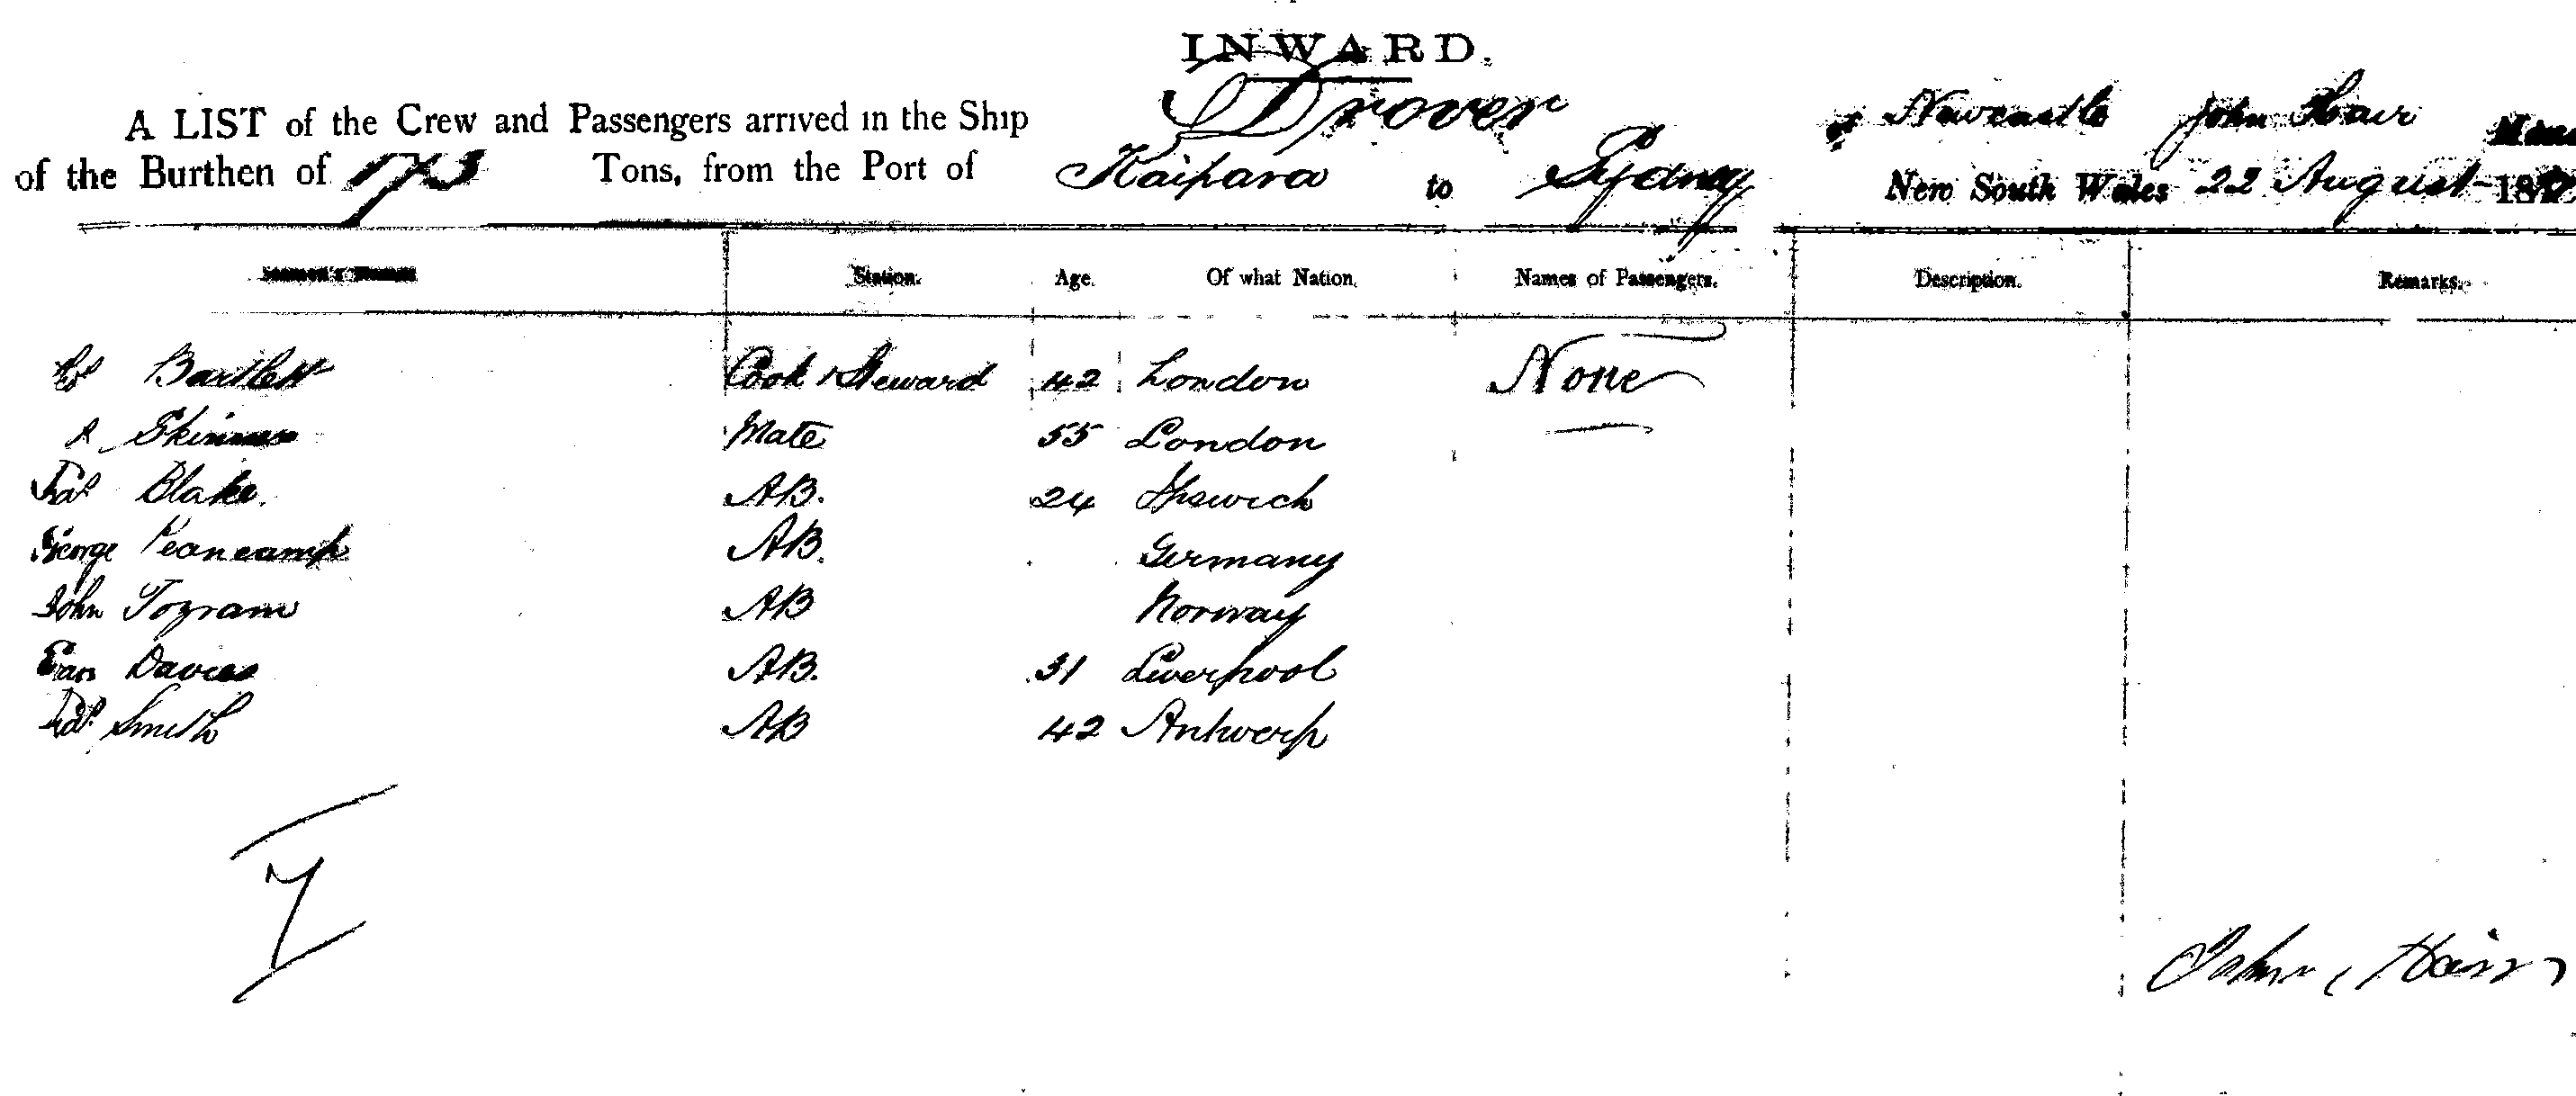 INWARD.
A LIST of the Crew and Passengers arrived in the Ship Drover of Newcastle John Hair
of the Burthen of 173 Tons, from the Port of Kaipara to Sydney New South Wales 22 August
Seamen's Names Station. Age. Of what Nation. Names of Passengers. Description. Remarks.
Bartlett Cook & Steward 42 London None
Skinner Mate 55 London
Blake AB. 24 Ipswich
George AB. Germany
John AB Norway
Evan Davies AB. 31 Liverpool
Smith AB 42 Antwerp
7
John Hair